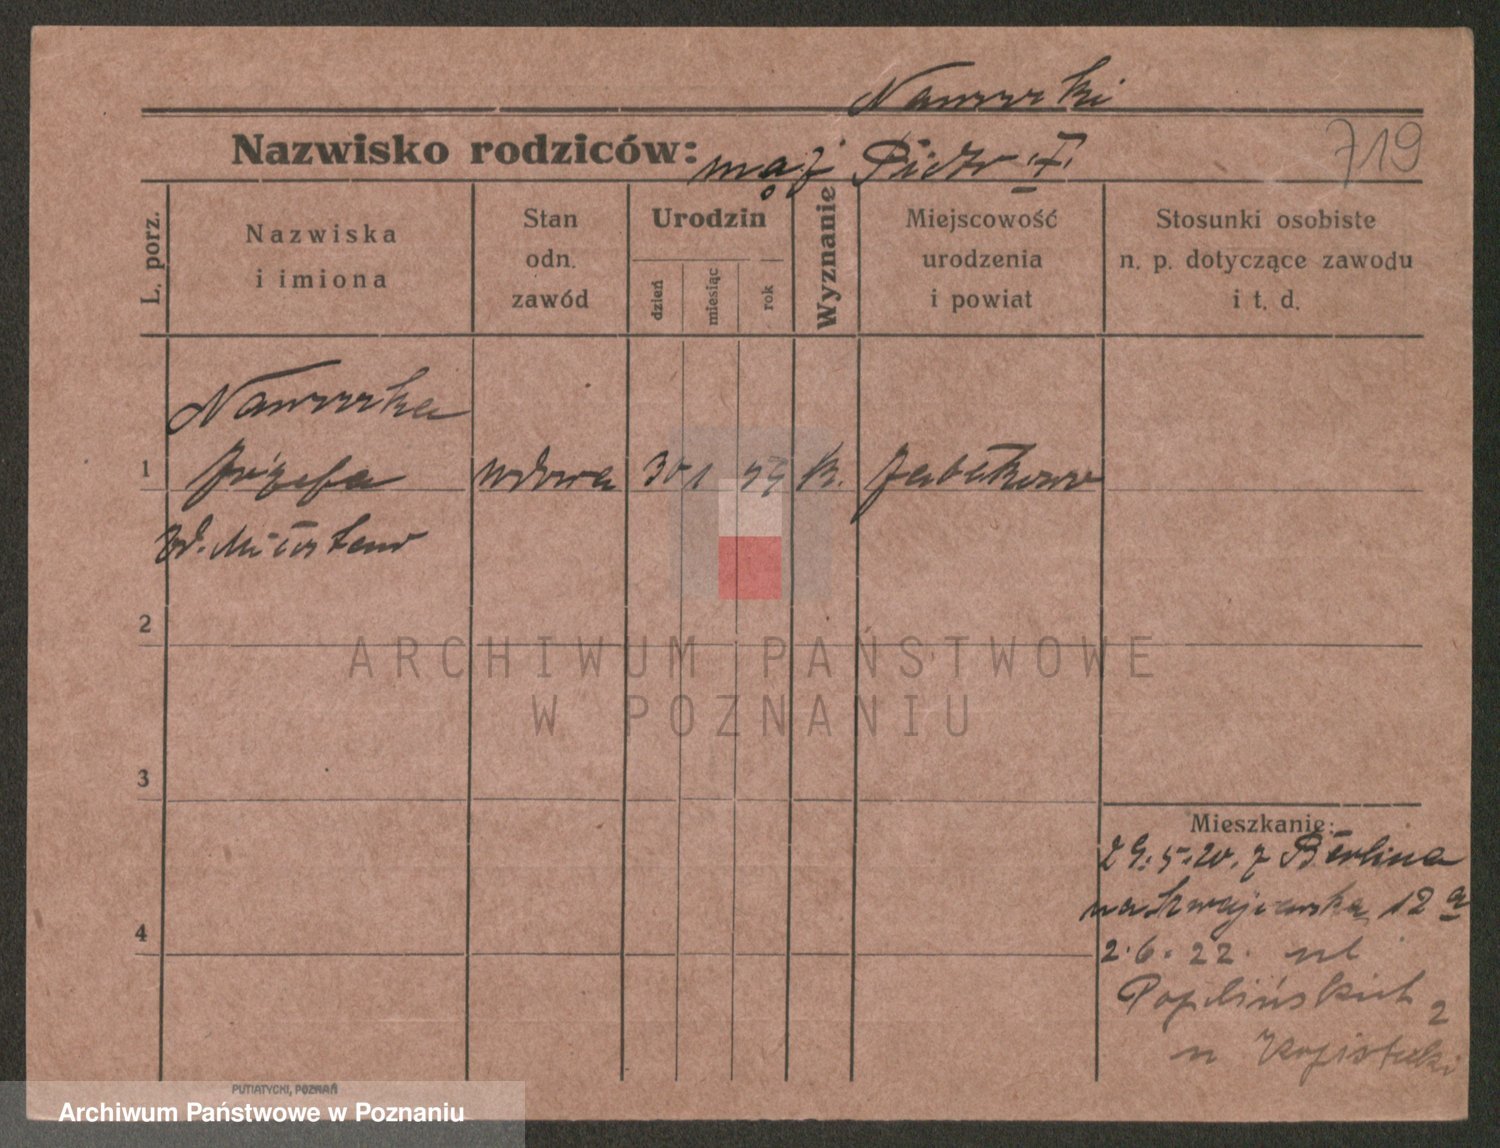 Nawrrcki
Nazwisko rodziców: mąż Piotr †
719
L. porz.
Nazwiska
i imiona
Stan
odn.
zawód
Urodzin
dzień
miesiąc
rok
Wyznanie
Miejscowość
urodzenia
i powiat
Stosunki osobiste
n. p. dotyczące zawodu
i t. d.
1
Józefa wdowa 30 1 59 K. Jabłkowo
2
3
4
Mieszkanie:
29.5.20. z Berlina
12a
2.6.22. ul
Poplińskich 2
u
PUTIATYCKI, POZNAŃ
ARCHIWUM PAŃSTWOWE
W POZNANIU
Archiwum Państwowe w Poznaniu